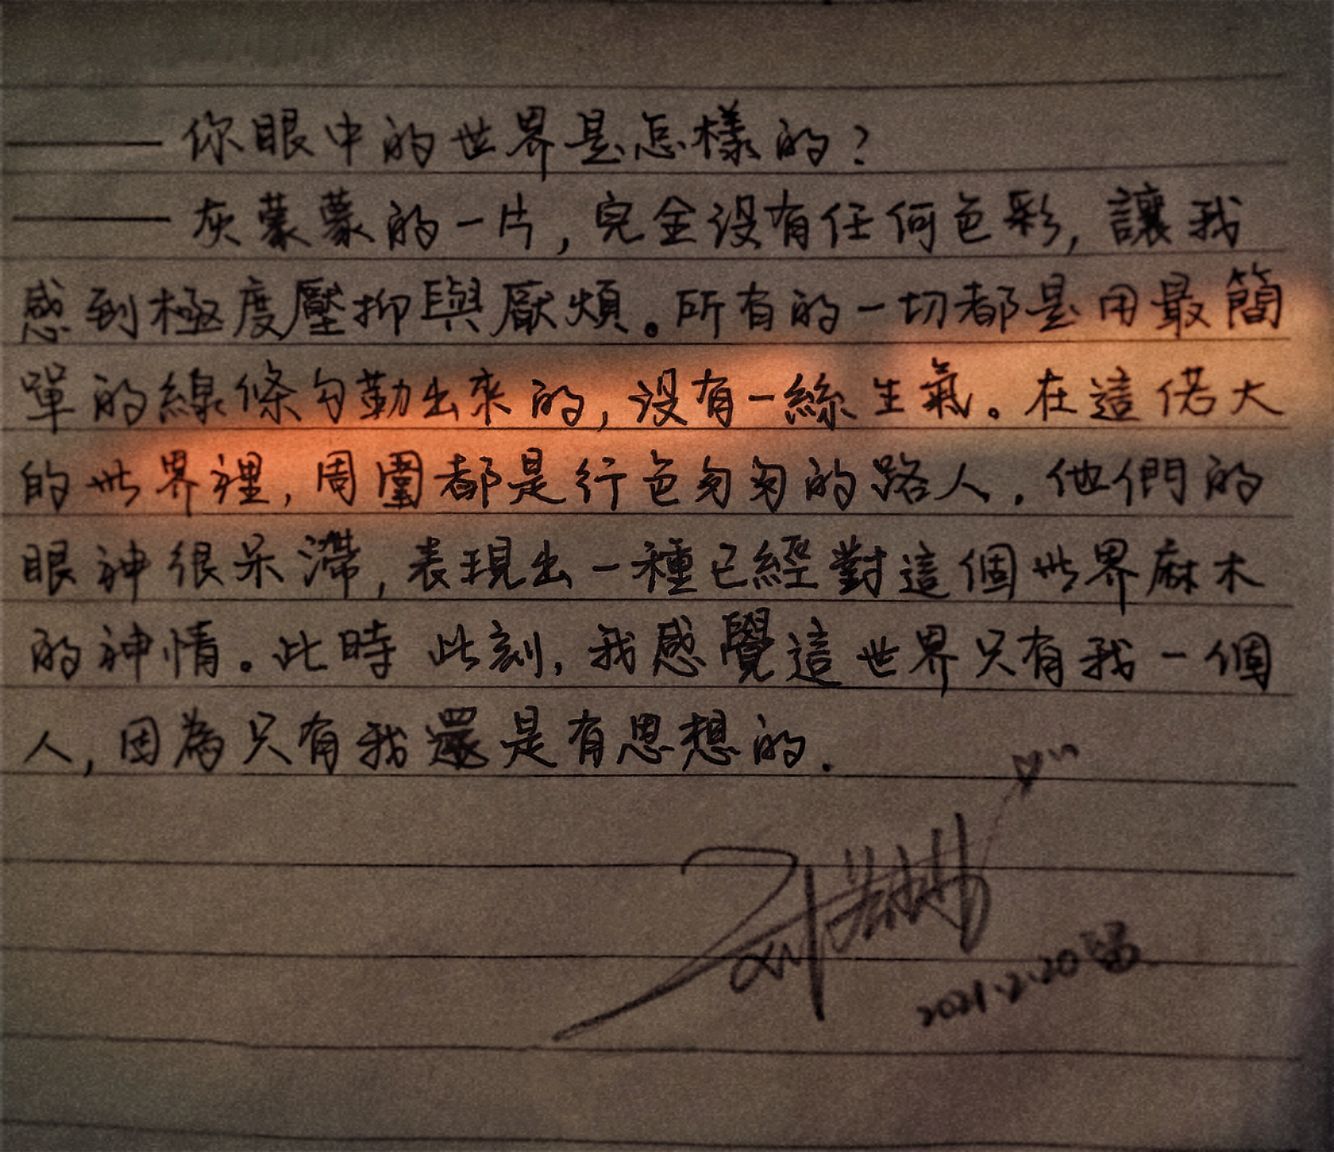 ——你眼中的世界是怎樣的？
——灰蒙蒙的一片，完全没有任何色彩，讓我
感到極度壓抑與厭煩。所有的一切都是用最簡
單的線條勾勒出來的，没有一絲生氣。在這偌大
的世界裡，周圍都是行色匆匆的路人．他們的
眼神很呆滯，表現出一種已經對這個世界麻木
的神情。此時此刻，我感覺這世界只有我一個
人，因為只有我還是有思想的．
2021.2.20留